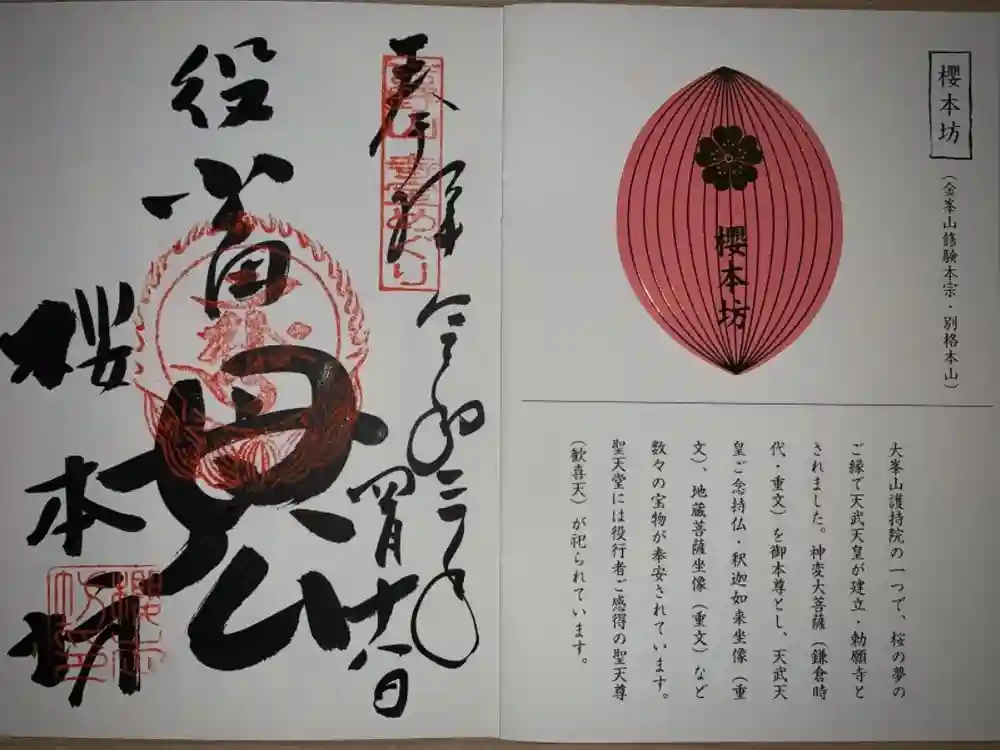 櫻本坊
(金峯山修験本宗・別格本山)
櫻本坊
大峯山護持院の一つで、桜の夢の
ご縁で天武天皇が建立・勅願寺と
されました。神変大菩薩(鎌倉時
代・重文)を御本尊とし、天武天
皇ご念持仏・釈迦如来坐像(重
文)、地蔵菩薩坐像(重文)など
数々の宝物が奉安されています。
聖天堂には役行者ご感得の聖天尊
(歓喜天)が祀られています。
奉拝
令和二年
櫻本坊